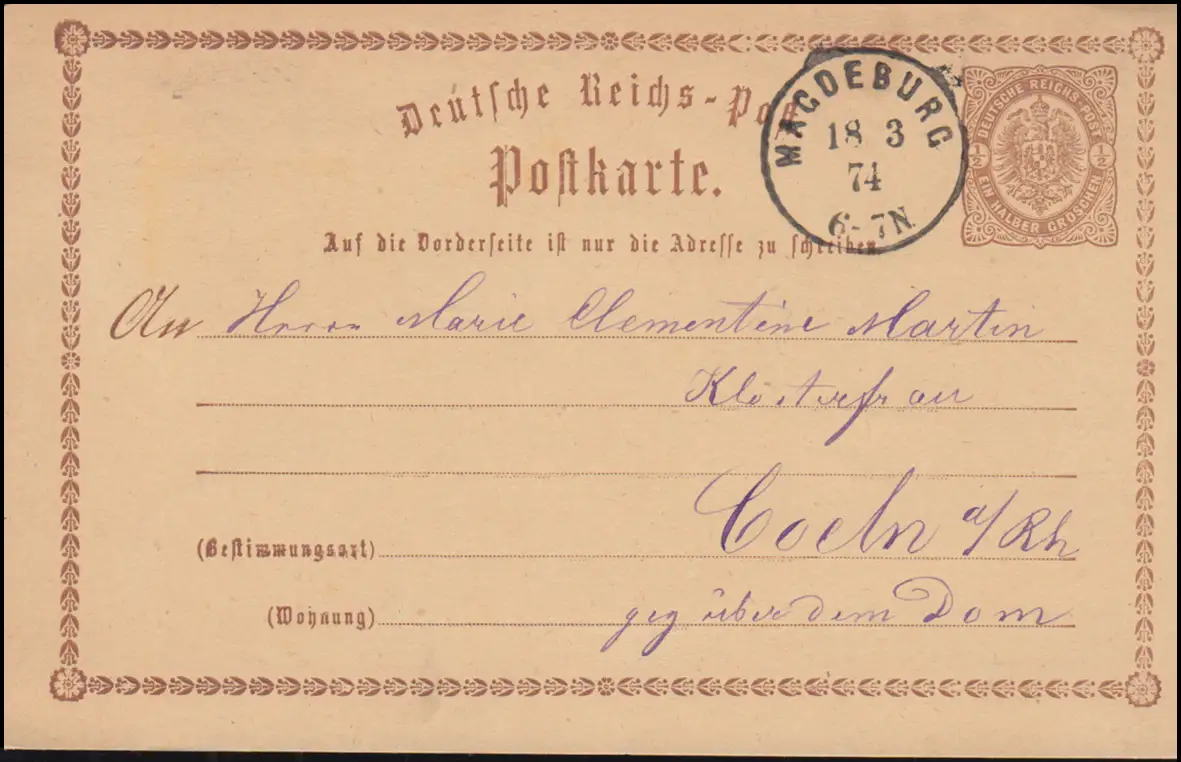 Deutsche Reichs-Post
Postkarte.
MAGDEBURG
18 3
74
6-7N.
DEUTSCHE REICHS-POST
½ ½
EIN HALBER GROSCHEN
Auf die Vorderseite ist nur die Adresse zu schreiben.
An Herrn Marie Clementine Martin
Klosterfrau
Coeln a/Rh
(Bestimmungsort)
(Wohnung) geg über dem Dom